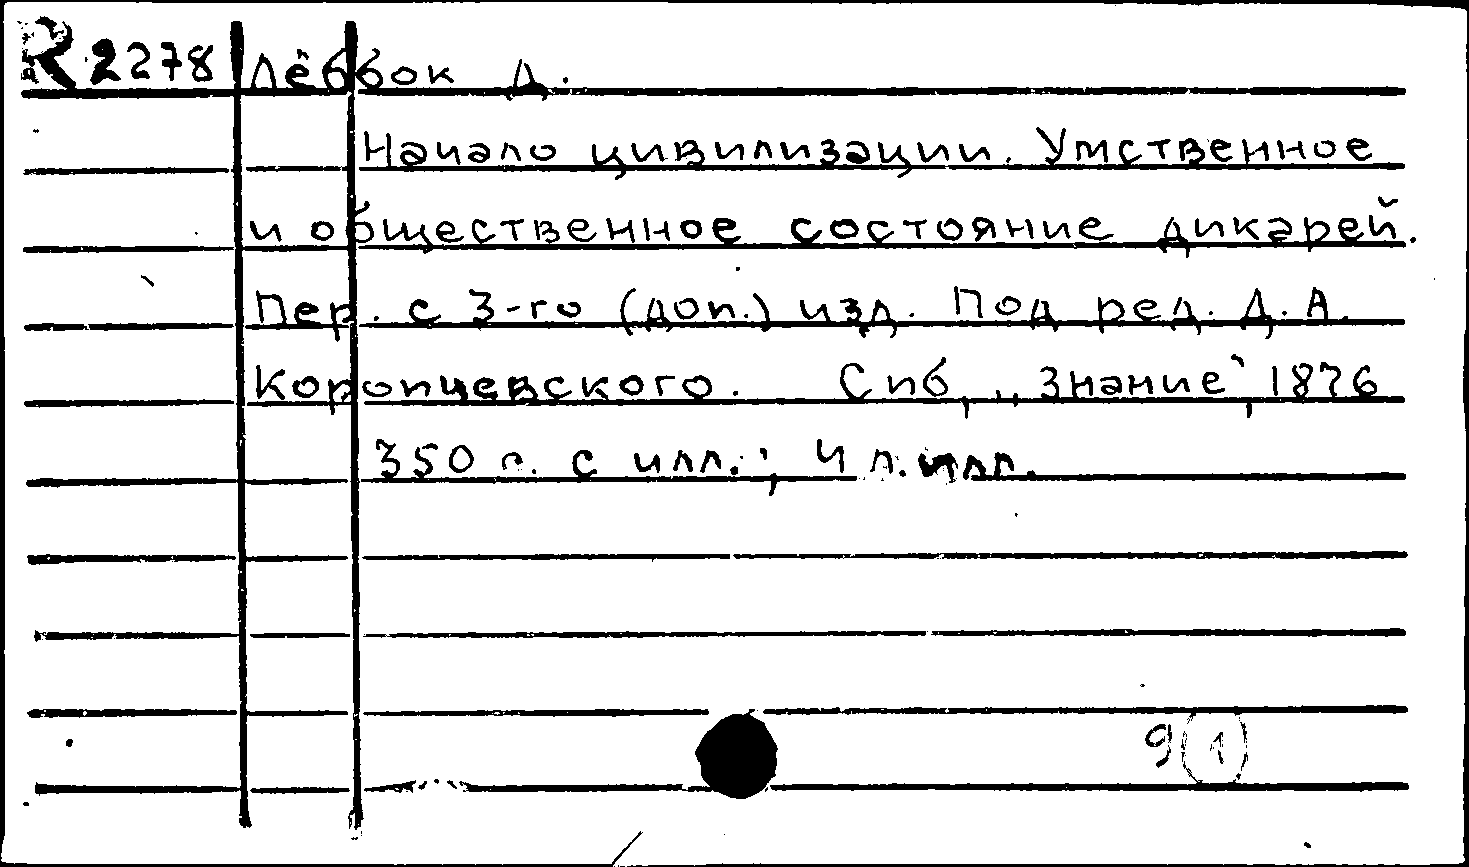 R 2278 Лёббок Д.
Начало цивилизации. Умственное
и общественное состояние дикарей.
Пер. с 3-го (доп.) изд. Под ред. Д. А.
Коропцевского. Спб, „Знание", 1876
350 с. с илл.; 4 л. илл.
9(1)